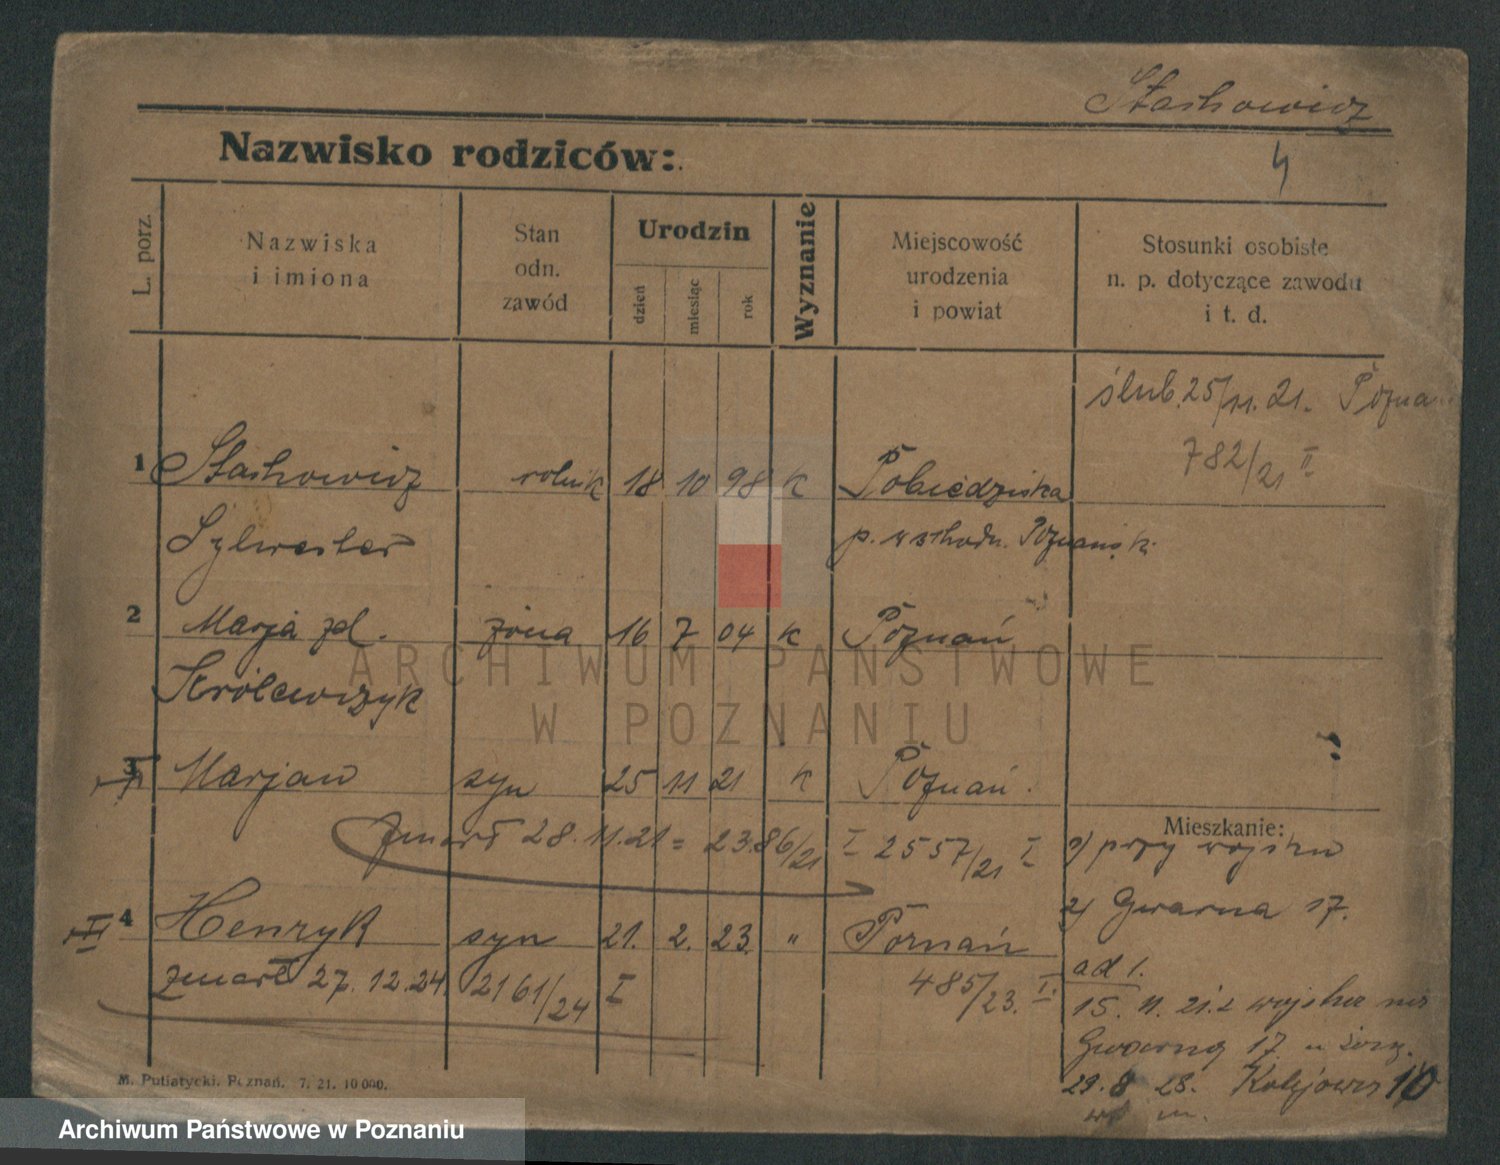 Stachowicz
Nazwisko rodziców:
4
L. porz.
Nazwiska
i imiona
Stan
odn.
zawód
Urodzin
dzień
miesiąc
rok
Wyznanie
Miejscowość
urodzenia
i powiat
Stosunki osobiste
n. p. dotyczące zawodu
i t. d.
ślub. 25/11. 21. Pozna
782/21 II
1 Stachowicz rolnik 18 10 98 K Pobiedziska
Sylwester p. wschodn. Poznańsk.
2 Marja zd. żona 16 7 04 K Poznań
Królewczyk
3 Marjan syn 25 11 21 K Poznań.
zmarł 28. 11. 21 = 2386/21 I 2557/21 I
Mieszkanie:
1) przy wojsku
2) Gwarna 17.
4 Henryk syn 21. 2. 23. " Poznań
zmarł 27. 12. 24. 2161/24 I 485/23. I.
ad 1.
15. 11. 21. z wojska na
Gwarną 17
29. 8 28. Kolejowa 10
M. Putiatycki. Poznań. 7. 21. 10 000.
ARCHIWUM PAŃSTWOWE
W POZNANIU
Archiwum Państwowe w Poznaniu